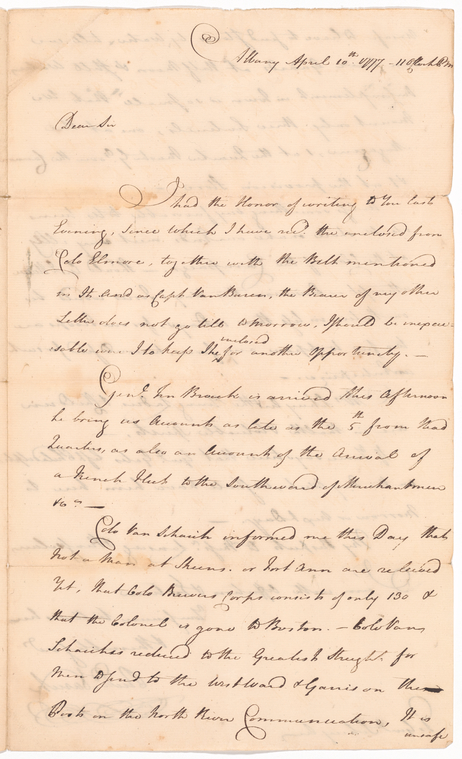 Albany April 10th 1777 - 11 OClock P.M
Dear Sir
I had the Honor of writing to You last
Evening, since which I have recd. the inclosed from
Colo Elmore, together with the Belt mentioned
in It. And as Capt Van Buren, the Bearer of my other
Letter does not go till tomorrow, I should be inexcu-
sable was I to keep the inclosed for another Opportunity. —
Genl. Tn Broeck is arrived this Afternoon
he brings us Accounts as late as the 5th from Head
Quarters, as also an Account of the Arrival of
a French Fleet to the Southward of Merchantmen
&ca —
Colo Van Schaick informed me this Day that
not a Man at Skeens. or Fort Ann are relieved
Yet, that Colo Brewers Corps consists of only 130 &
that the Colonel is gone to Boston. — Colo Van
Schaick is reduced to the Greatest Streight. for
Men to send to the Westward & Garrison the
Posts on the North River Communication, It is
unsafe